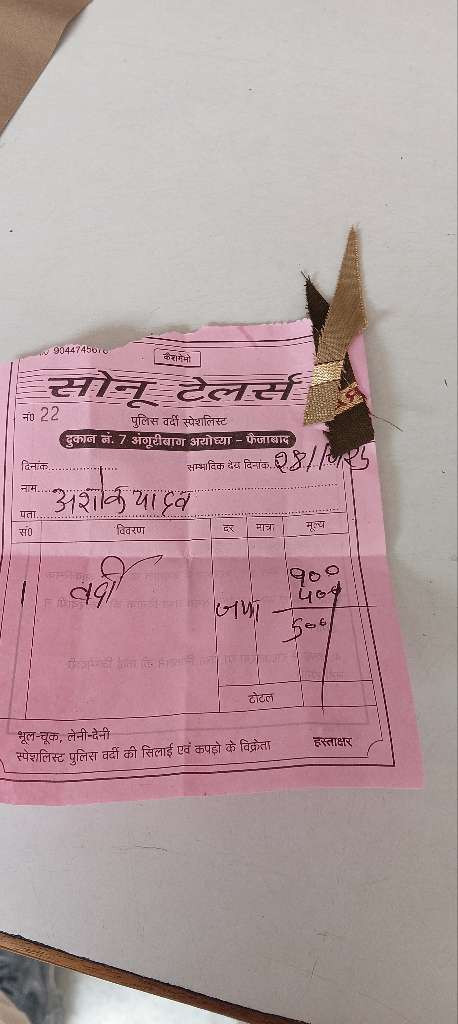 9044745670
कैशमेमो
सोनू टेलर्स
नं0 22
पुलिस वर्दी स्पेशलिस्ट
दुकान नं. 7 अंगूरीबाग अयोध्या - फैजाबाद
दिनांक.................... सम्भावित देय दिनांक.
नाम... अशोक यादव
पता
सं0 विवरण दर मात्रा मूल्य
1 वर्दी ९००
जमा ५००
टोटल
भूल-चूक, लेनी-देनी
स्पेशलिस्ट पुलिस वर्दी की सिलाई एवं कपड़ो के विक्रेता हस्ताक्षर